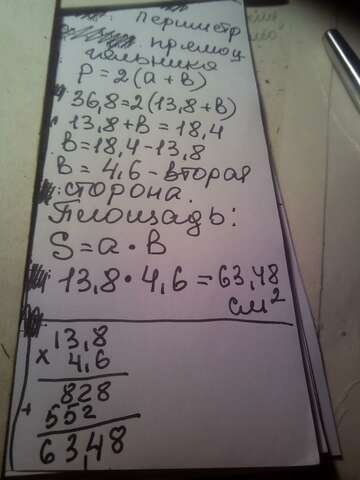 Периметр
прямоу
гольника
P = 2(a + в)
36,8 = 2(13,8 + в)
13,8 + в = 18,4
в = 18,4 - 13,8
в = 4,6 - вторая
сторона.
Площадь:
S = a · в
13,8 · 4,6 = 63,48
см²
13,8
× 4,6
828
+ 552
63,48